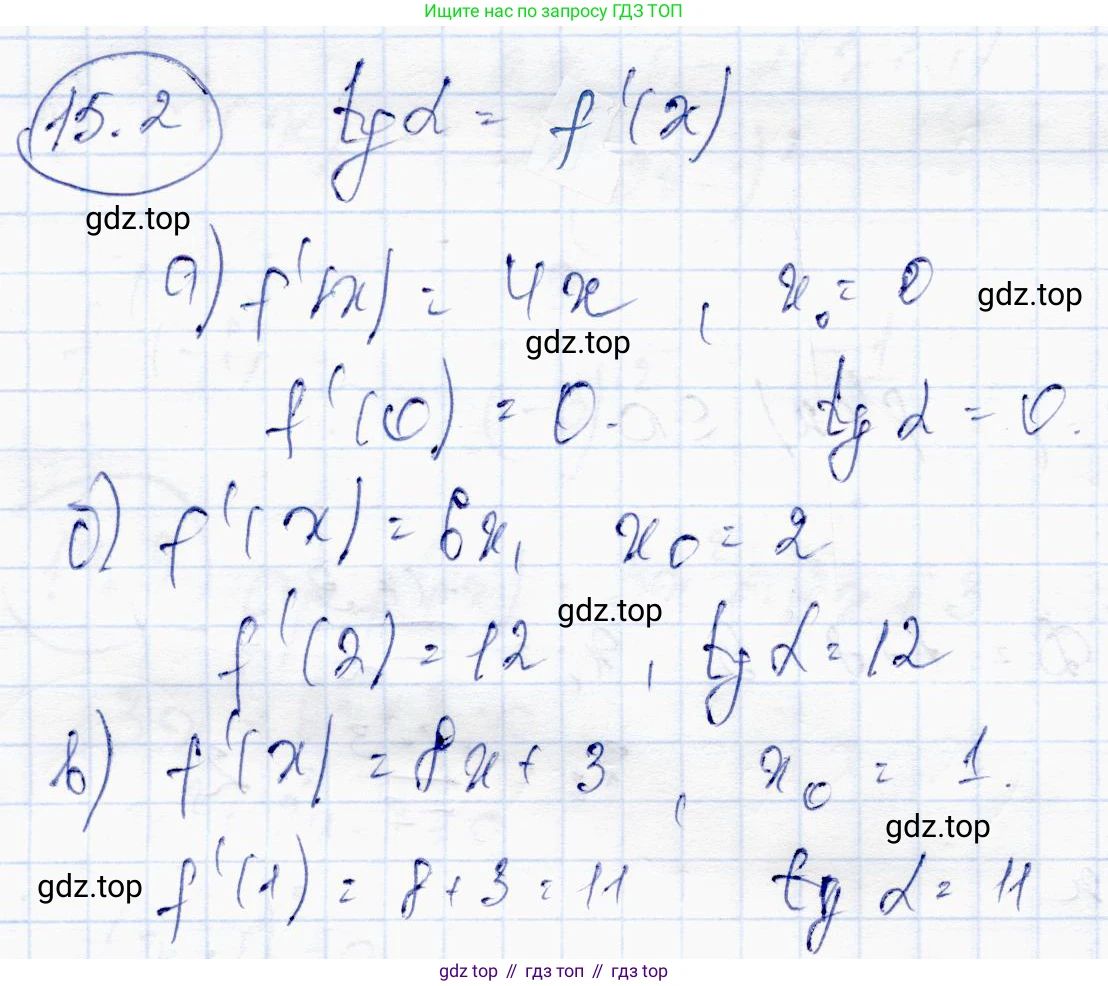 Ищите нас по запросу ГДЗ ТОП
15.2 tg α = f'(x)
gdz.top
а) f'(x) = 4x, x₀ = 0
gdz.top
gdz.top
f'(0) = 0. tg α = 0.
б) f'(x) = 6x, x₀ = 2
gdz.top
f'(2) = 12, tg α = 12
в) f'(x) = 8x + 3, x₀ = 1.
gdz.top
gdz.top
f'(1) = 8 + 3 = 11 tg α = 11
gdz top // гдз топ // гдз top